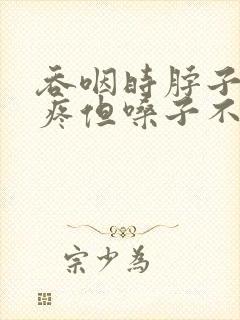 吞咽时脖子
疼但嗓子不
宗少為